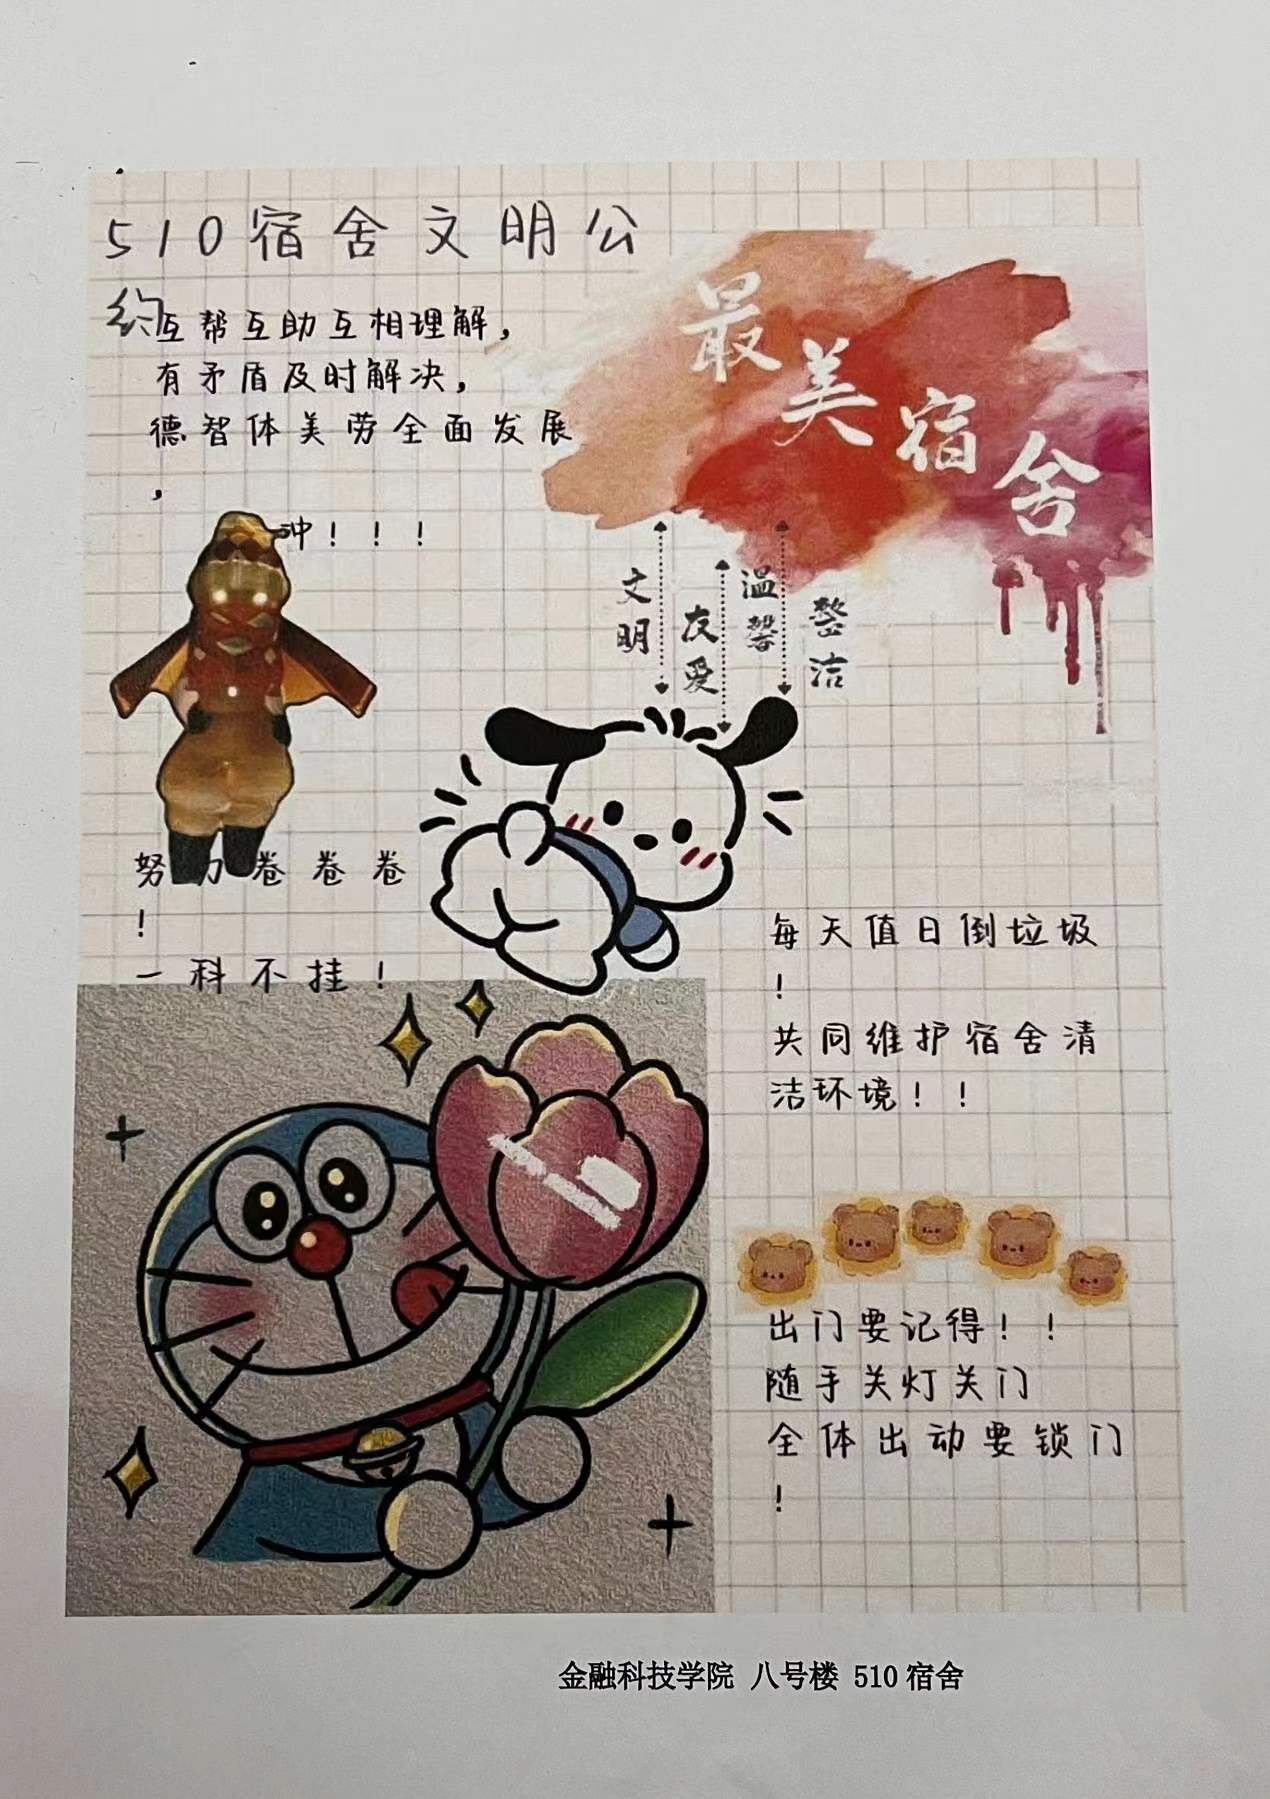 510宿舍文明公
约
互帮互助互相理解，
有矛盾及时解决，
德智体美劳全面发展
，
冲！！！
最美宿舍
文明
友爱
温馨
整洁
努力卷卷卷
！
一科不挂！
每天值日倒垃圾
！
共同维护宿舍清
洁环境！！
出门要记得！！
随手关灯关门
全体出动要锁门
！
金融科技学院 八号楼 510宿舍